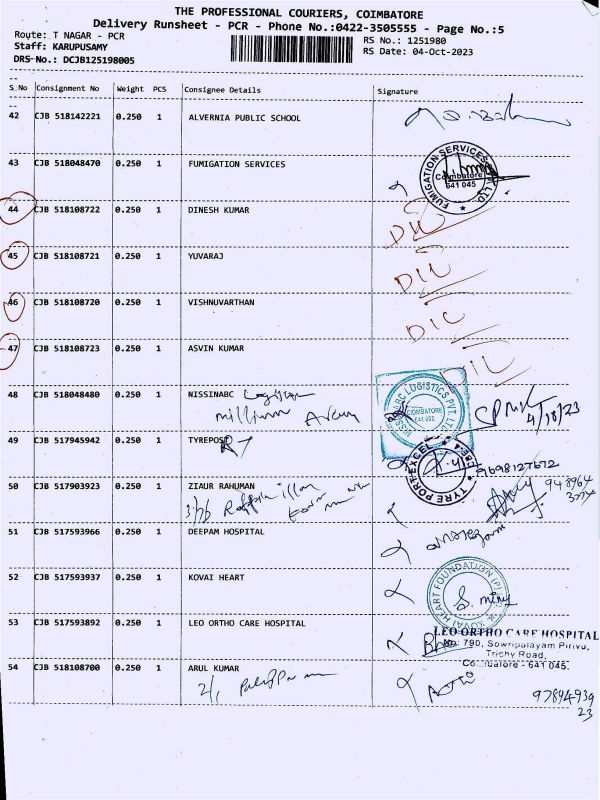 THE PROFESSIONAL COURIERS, COIMBATORE
Delivery Runsheet - PCR - Phone No.:0422-3505555 - Page No.:5
Route: T NAGAR - PCR RS No.: 1251980
Staff: KARUPUSAMY RS Date: 04-Oct-2023
DRS-No.: DCJB125198005
S.No Consignment No Weight PCS Consignee Details Signature
42 CJB 518142221 0.250 1 ALVERNIA PUBLIC SCHOOL
43 CJB 518048470 0.250 1 FUMIGATION SERVICES
FUMIGATION SERVICES PVT LTD.
Coimbatore
641 045
44 CJB 518108722 0.250 1 DINESH KUMAR DIL
45 CJB 518108721 0.250 1 YUVARAJ DIL
46 CJB 518108720 0.250 1 VISHNUVARTHAN DIL
47 CJB 518108723 0.250 1 ASVIN KUMAR DIL
48 CJB 518048480 0.250 1 NISSINABC
LOGISTICS PVT. LTD.
COIMBATORE
4/10/23
49 CJB 517945942 0.250 1 TYREPOST
9698127672
TYRE PORT-EXCEL
50 CJB 517903923 0.250 1 ZIAUR RAHUMAN
51 CJB 517593966 0.250 1 DEEPAM HOSPITAL
52 CJB 517593937 0.250 1 KOVAI HEART
KOVAI HEART FOUNDATION (P)
53 CJB 517593892 0.250 1 LEO ORTHO CARE HOSPITAL
LEO ORTHO CARE HOSPITAL
No: 790, Sowripalayam Pirivu,
Trichy Road,
Coimbatore - 641 045.
54 CJB 518108700 0.250 1 ARUL KUMAR
97894939
23